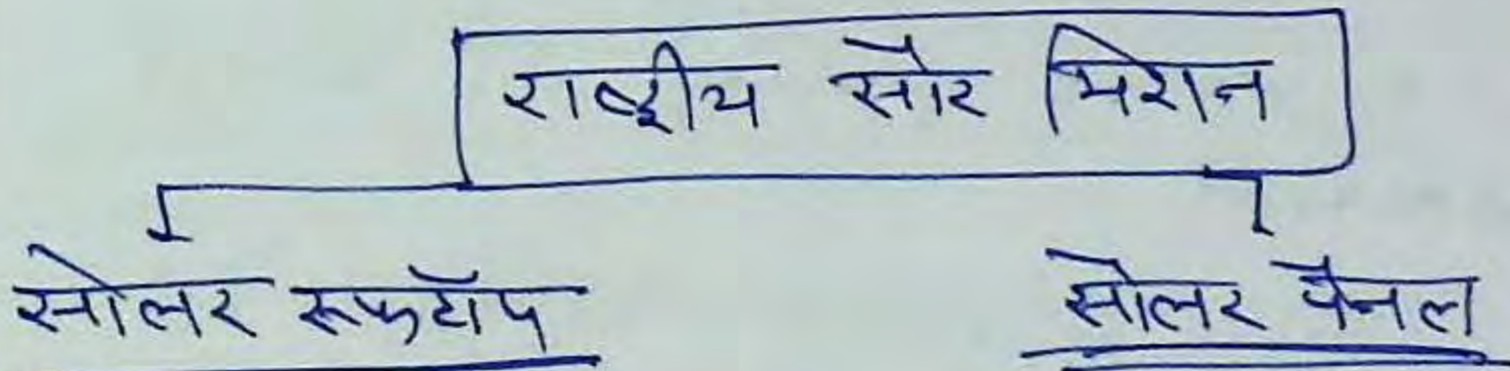 राष्ट्रीय सौर मिशन
सोलर रूफटॉप सोलर पैनल